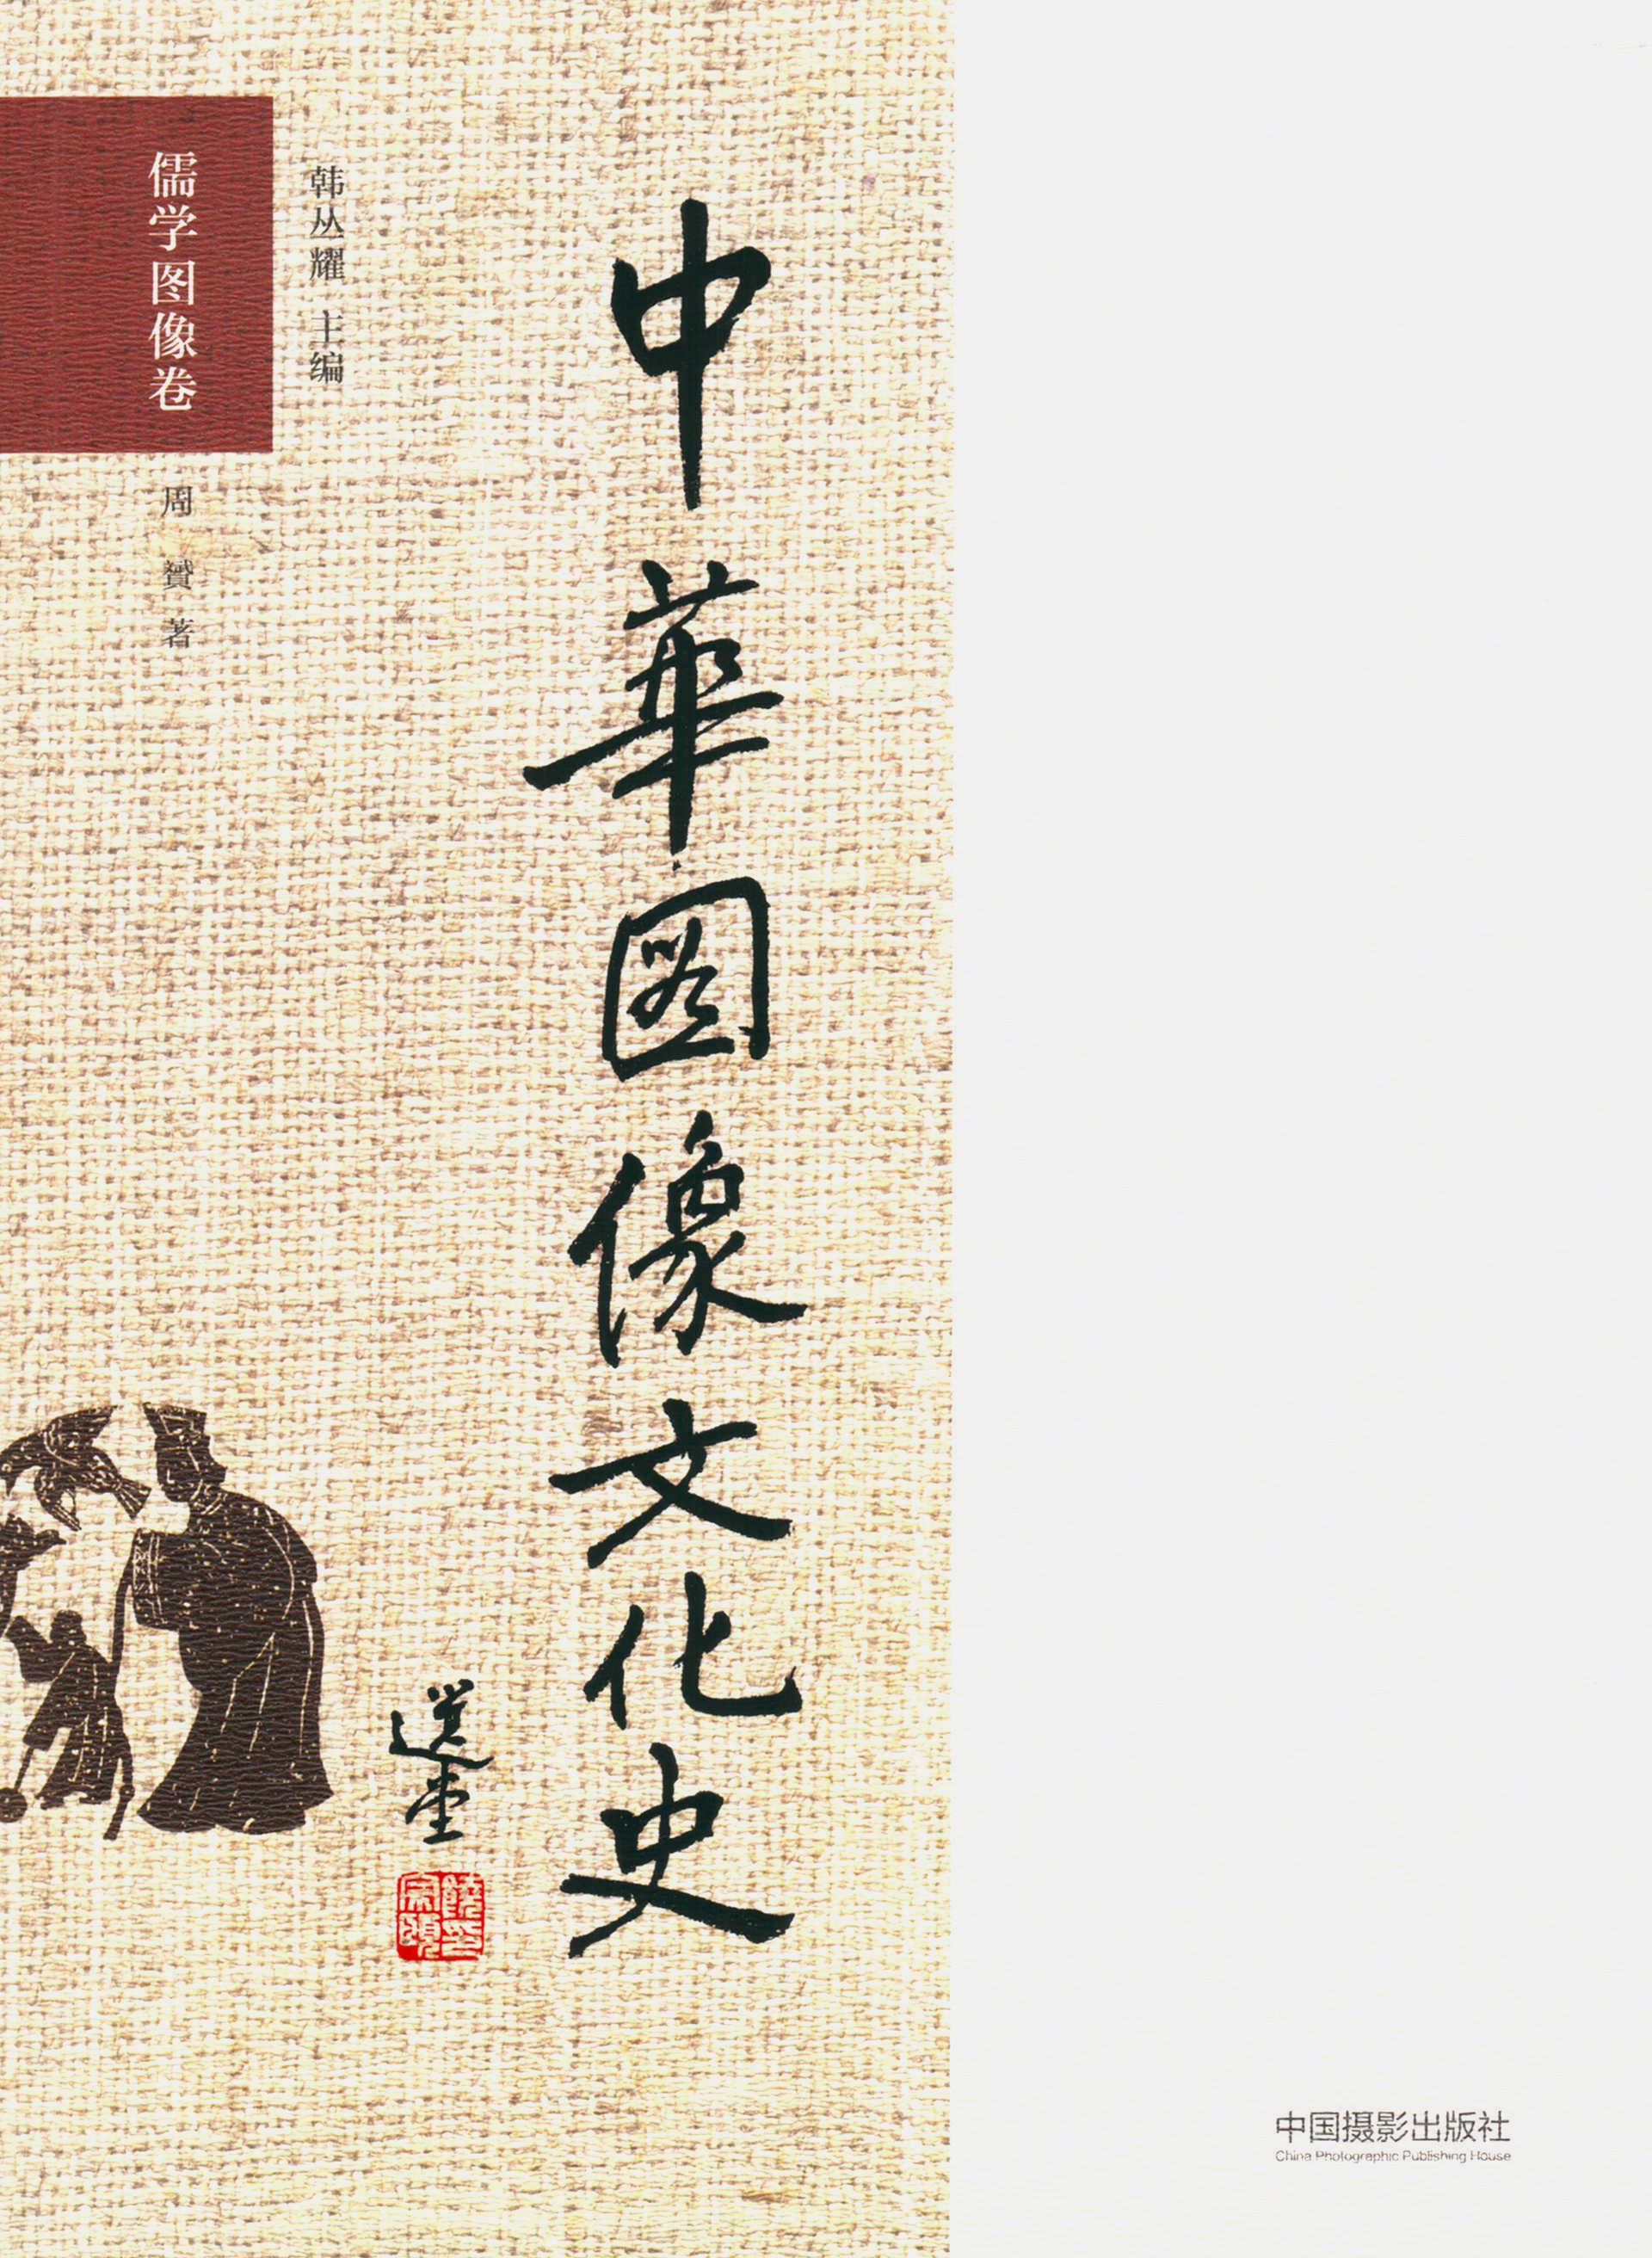 中華圖像文化史
選堂
饒宗頤印
韩丛耀 主编
儒学图像卷
周 赟 著
中国摄影出版社
China Photographic Publishing House